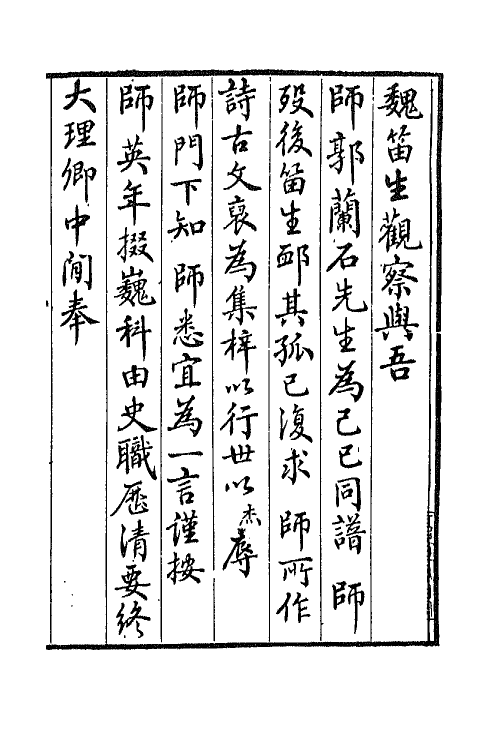 魏笛生觀察與吾
師郭蘭石先生為己巳同譜 師
歿後笛生卹其孤已復求 師所作
詩古文裒為集梓以行世以杰辱
師門下知 師悉宜為一言謹按
師英年掇巍科由史職歷清要終
大理卿中閒奉